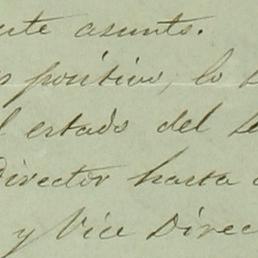 asunto.
positivo, lo
estado del
Director hasta
y Vice Direc